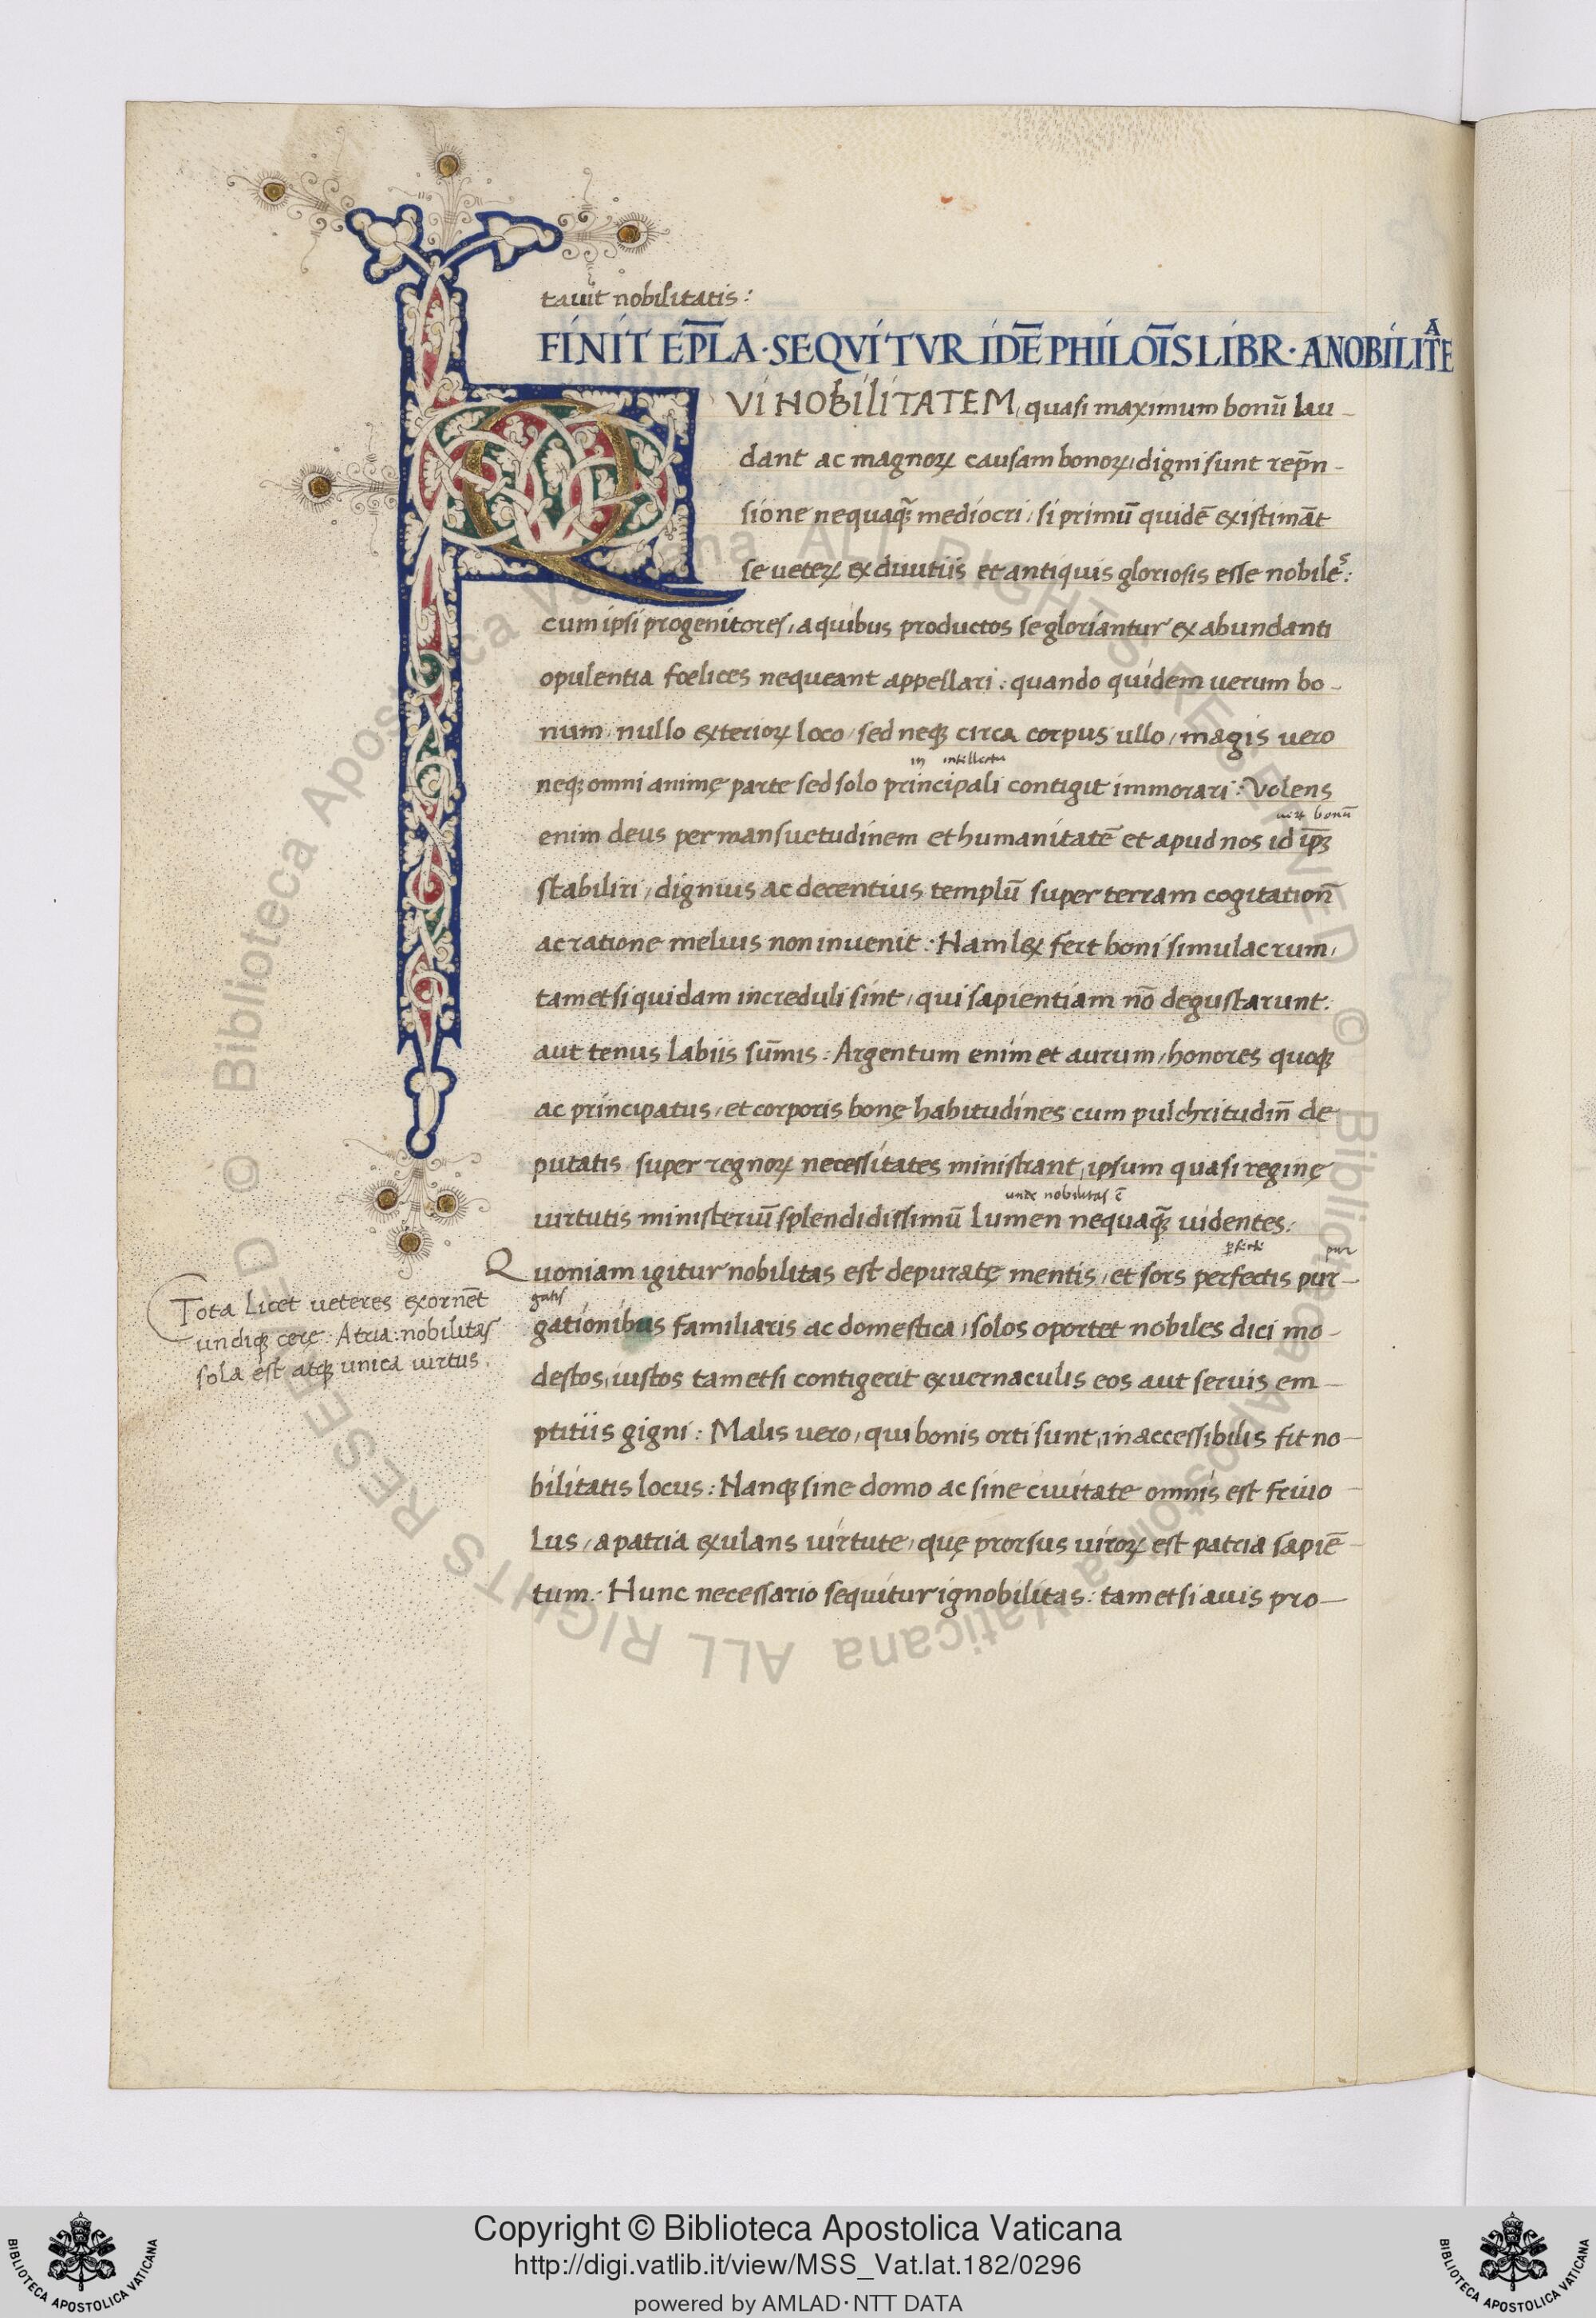 tauit nobilitatis:
FINIT EPL̅A·SEQVITVR IDE̅ PHILOI̅S LIBR·A NOBILITA̅TE
QVI NOBILITATEM, quasi maximum bonū lau-
dant ac magnoꝝ causam bonoꝝ, digni sunt rep̄n-
sione nequaqꝫ̄ mediocri, si primū quidē existimāt
se ueteꝝ ex diuitiis et antiquis gloriosis esse nobiles:
cum ipsi progenitores, a quibus productos se gloriantur ex abundanti
opulentia fœlices nequeant appellari: quando quidem uerum bo-
num nullo exterioꝝ loco, sed neqꝫ circa corpus ullo, magis uero
in intellectu
neqꝫ omni animę parte sed solo principali contigit immorari: Volens
bonū
enim deus per mansuetudinem et humanitatē et apud nos id ip̄ꝫ
stabiliri, dignius ac decentius templū super terram cogitation̄
ac ratione melius non inuenit: Nam lex fert boni simulacrum,
tametsi quidam increduli sint, qui sapientiam nō degustarunt:
aut tenus labiis sūmis: Argentum enim et aurum, honores quoqꝫ
ac principatus, et corporis bonę habitudines cum pulchritudin̄ de
putatis super regnoꝝ necessitates ministrant, ipsum quasi reginę
unde nobilitas ē
uirtutis ministeriū splendidissimū lumen nequaqꝫ̄ uidentes:
pur
Quoniam igitur nobilitas est depuratę mentis, et sors perfectis pur-
gatis
gationibus familiaris ac domestica, solos oportet nobiles dici mo-
destos, iustos tametsi contigerit ex uernaculis eos aut seruis em-
ptitiis gigni: Malis uero, qui bonis orti sunt, inaccessibilis fit no-
bilitatis locus: Nanqꝫ sine domo ac sine ciuitate omnis est friuo-
lus, a patria exulans uirtute, quę prorsus uiroꝝ est patria sapiē-
tum: Hunc necessario sequitur ignobilitas: tametsi auis pro-
Tota licet ueteres exornēt
undiqꝫ cerę Atria: nobilitas
sola est atqꝫ unica uirtus.
© Biblioteca Apostolica Vaticana ALL RIGHTS RESERVED
© Biblioteca Apostolica Vaticana ALL RIGHTS RESERVED
Copyright © Biblioteca Apostolica Vaticana
http://digi.vatlib.it/view/MSS_Vat.lat.182/0296
powered by AMLAD·NTT DATA
BIBLIOTECA APOSTOLICA VATICANA
BIBLIOTECA APOSTOLICA VATICANA